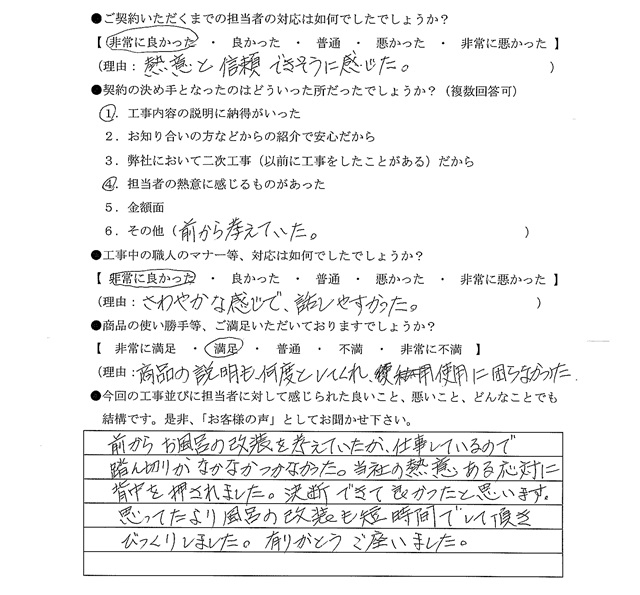 ●ご契約いただくまでの担当者の対応は如何でしたでしょうか？
【 非常に良かった ・ 良かった ・ 普通 ・ 悪かった ・ 非常に悪かった 】
（理由：熱意と信頼できそうに感じた。 ）
●契約の決め手となったのはどういった所だったでしょうか？（複数回答可）
1．工事内容の説明に納得がいった
2．お知り合いの方などからの紹介で安心だから
3．弊社において二次工事（以前に工事をしたことがある）だから
4．担当者の熱意に感じるものがあった
5．金額面
6．その他（前から考えていた。 ）
●工事中の職人のマナー等、対応は如何でしたでしょうか？
【 非常に良かった ・ 良かった ・ 普通 ・ 悪かった ・ 非常に悪かった 】
（理由：さわやかな感じで、話しやすかった。 ）
●商品の使い勝手等、ご満足いただいておりますでしょうか？
【 非常に満足 ・ 満足 ・ 普通 ・ 不満 ・ 非常に不満 】
（理由：商品の説明も何度としてくれ、使用に困らなかった
●今回の工事並びに担当者に対して感じられた良いこと、悪いこと、どんなことでも
結構です。是非、「お客様の声」としてお聞かせ下さい。
前からお風呂の改装を考えていたが、仕事しているので
踏ん切りがなかなかつかなかった。当社の熱意ある応対に
背中を押されました。決断できて良かったと思います。
思ってたより風呂の改装も短時間でして頂き
びっくりしました。有りがとうご座いました。